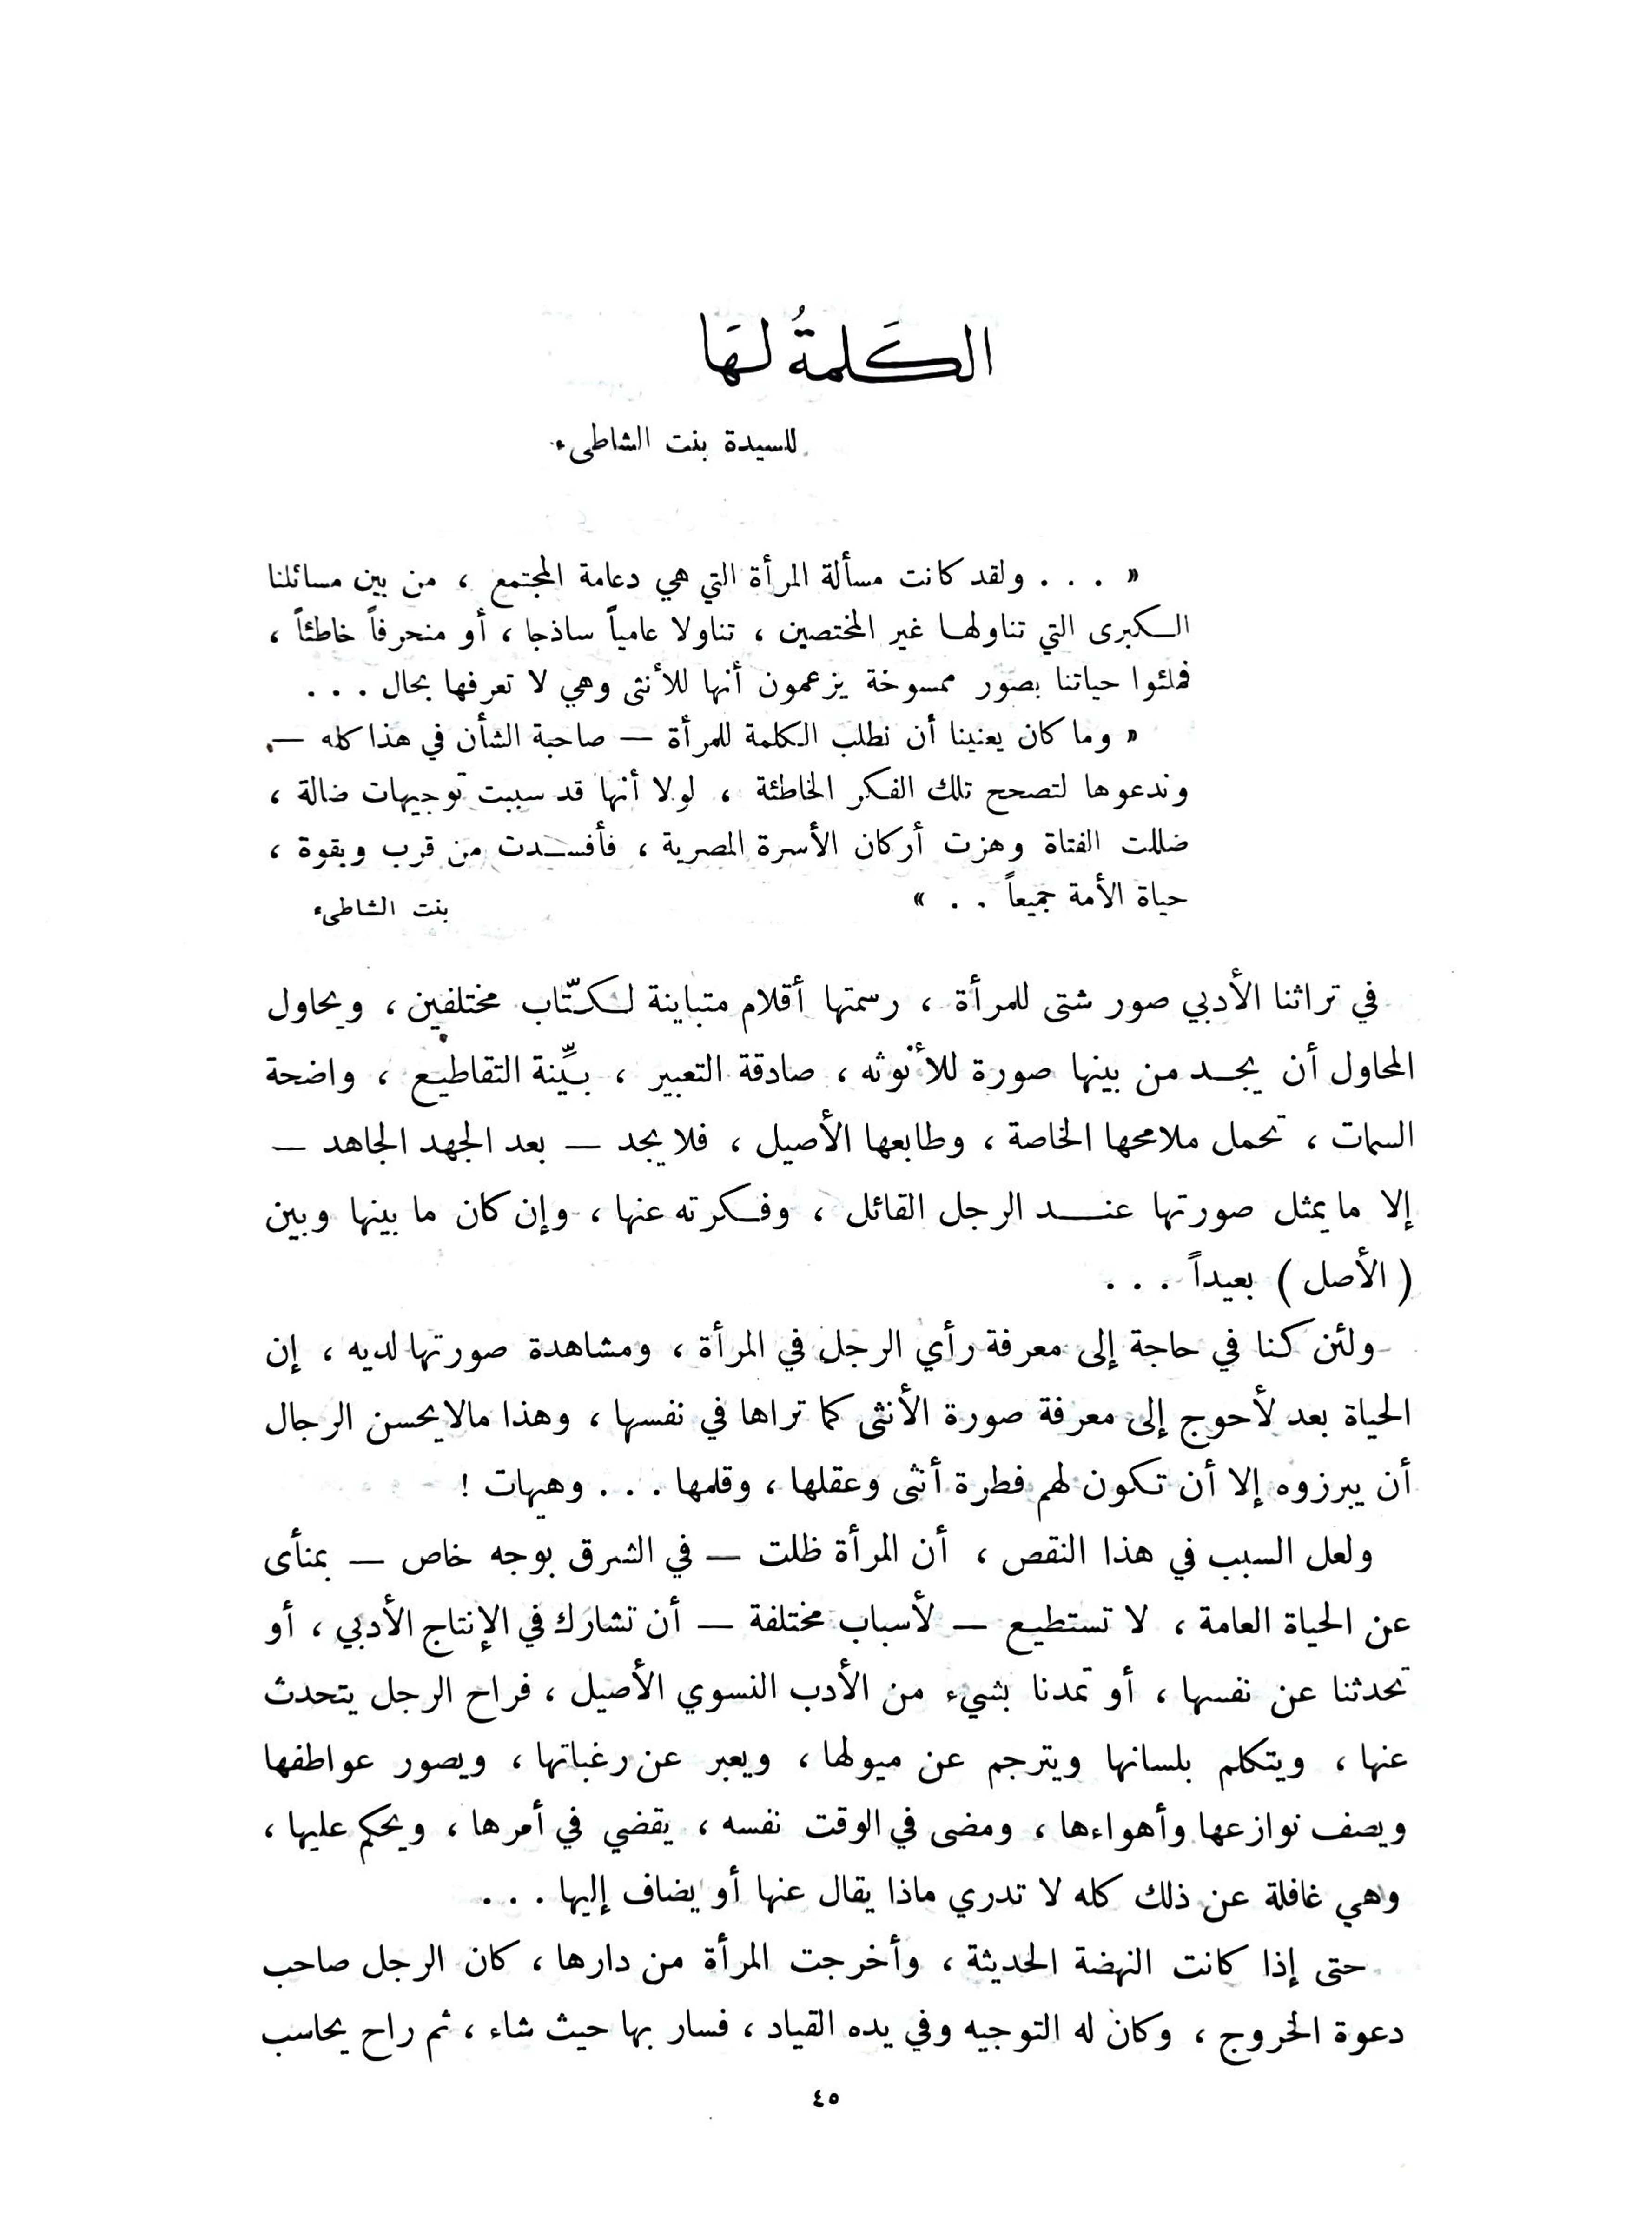 الكَلمةُ لهَا
للسيدة بنت الشاطىء
« . . . ولقد كانت مسألة المرأة التي هي دعامة المجتمع ، من بين مسائلنا
الكبرى التي تناولها غير المختصين ، تناولا عامياً ساذجا ، أو منحرفاً خاطئاً ،
فملئوا حياتنا بصور ممسوخة يزعمون أنها للأنثى وهي لا تعرفها بحال . . .
« وما كان يعنينا أن نطلب الكلمة للمرأة — صاحبة الشأن في هذا كله —
وندعوها لتصحح تلك الفكر الخاطئة ، لولا أنها قد سببت توجيهات ضالة ،
ضللت الفتاة وهزت أركان الأسرة المصرية ، فأفسدت من قرب وبقوة ،
حياة الأمة جميعاً . . »
بنت الشاطىء
في تراثنا الأدبي صور شتى للمرأة ، رسمتها أقلام متباينة لكتّاب مختلفين ، ويحاول
المحاول أن يجد من بينها صورة للأنوثه ، صادقة التعبير ، بيِّنة التقاطيع ، واضحة
السمات ، تحمل ملامحها الخاصة ، وطابعها الأصيل ، فلا يجد — بعد الجهد الجاهد —
إلا ما يمثل صورتها عند الرجل القائل ، وفكرته عنها ، وإن كان ما بينها وبين
( الأصل ) بعيداً . . .
ولئن كنا في حاجة إلى معرفة رأي الرجل في المرأة ، ومشاهدة صورتها لديه ، إن
الحياة بعد لأحوج إلى معرفة صورة الأنثى كما تراها في نفسها ، وهذا مالا يحسن الرجال
أن يبرزوه إلا أن تكون لهم فطرة أنثى وعقلها ، وقلمها . . . وهيهات !
ولعل السبب في هذا النقص ، أن المرأة ظلت — في الشرق بوجه خاص — بمنأى
عن الحياة العامة ، لا تستطيع — لأسباب مختلفة — أن تشارك في الإنتاج الأدبي ، أو
تحدثنا عن نفسها ، أو تمدنا بشيء من الأدب النسوي الأصيل ، فراح الرجل يتحدث
عنها ، ويتكلم بلسانها ويترجم عن ميولها ، ويعبر عن رغباتها ، ويصور عواطفها
ويصف نوازعها وأهواءها ، ومضى في الوقت نفسه ، يقضي في أمرها ، ويحكم عليها ،
وهي غافلة عن ذلك كله لا تدري ماذا يقال عنها أو يضاف إليها . . .
حتى إذا كانت النهضة الحديثة ، وأخرجت المرأة من دارها ، كان الرجل صاحب
دعوة الخروج ، وكان له التوجيه وفي يده القياد ، فسار بها حيث شاء ، ثم راح يحاسب
٤٥